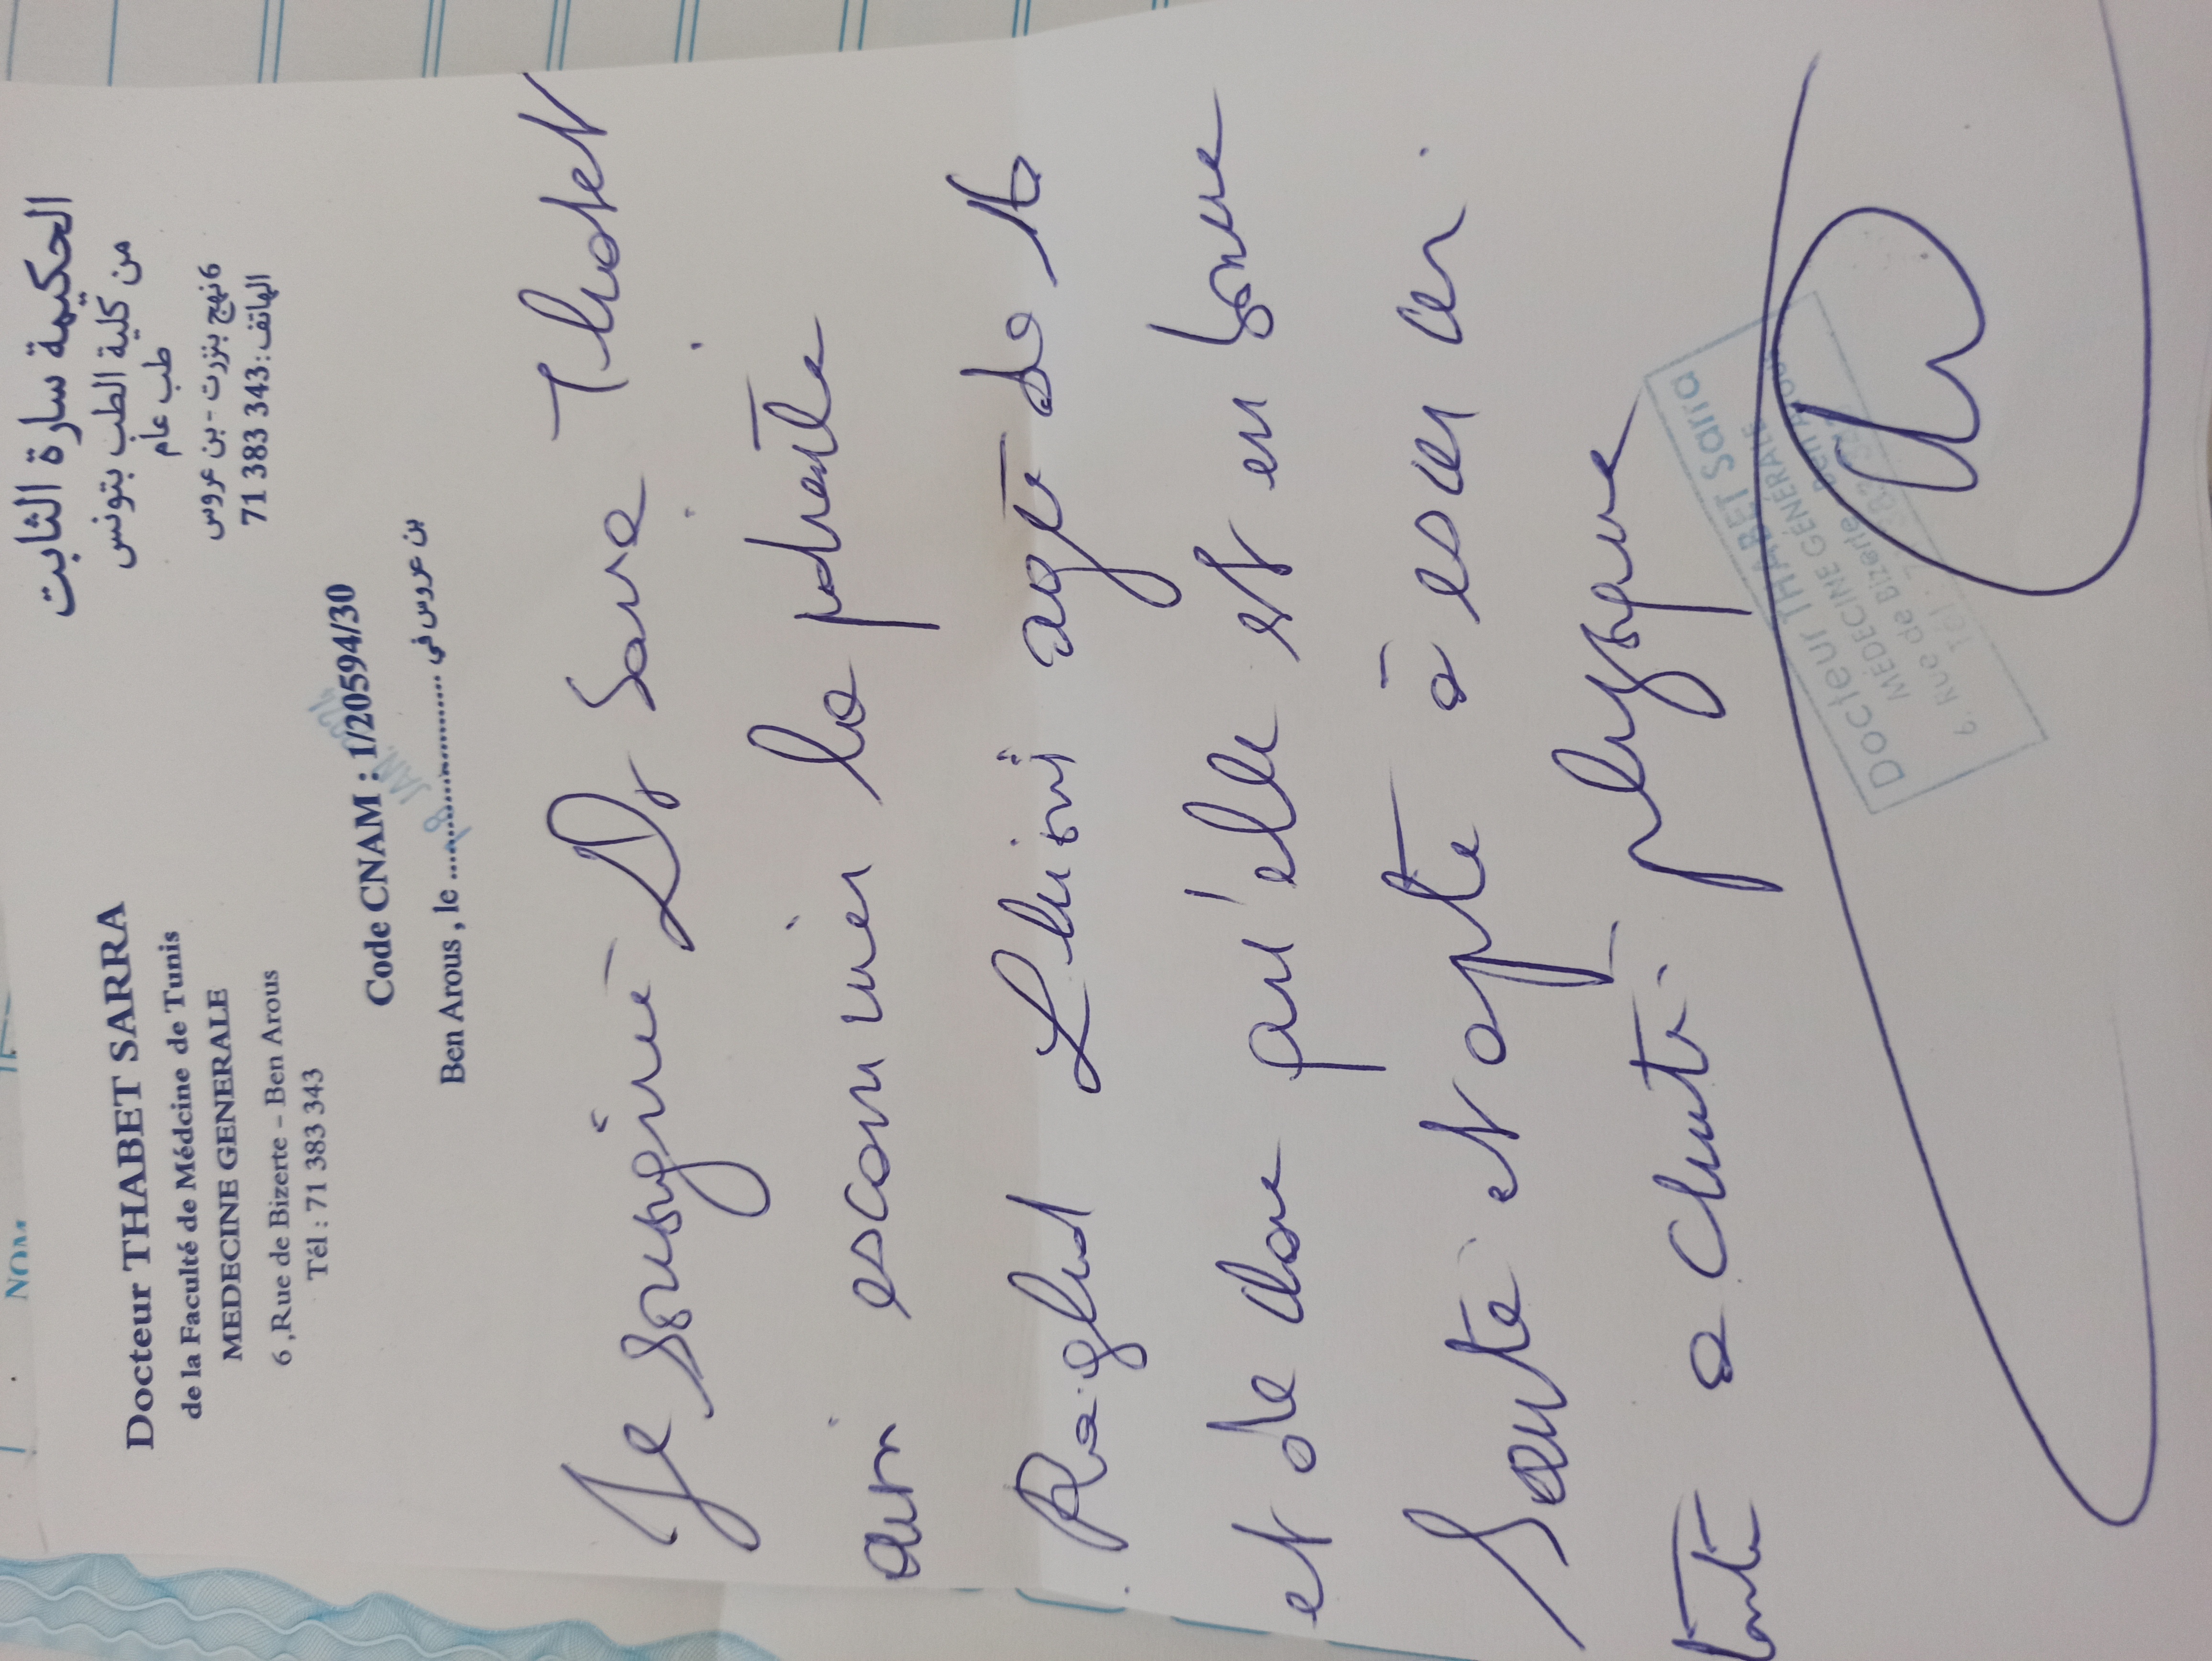 Docteur THABET SARRA
de la Faculté de Médcine de Tunis
MEDECINE GENERALE
6 ,Rue de Bizerte - Ben Arous
Tél : 71 383 343
الحكيمة سارة الثابت
من كلية الطب بتونس
طب عام
6 نهج بنزرت - بن عروس
الهاتف : 343 383 71
Code CNAM : 1/20594/30
Ben Arous , le .................... بن عروس في
Je soussigné Dr Sarra Thabet
avoir examiner la patiente
âgé de
et declare qu'elle est en bonne
Santé et apte à exercer
toute activité physique
Docteur THABET Sarra
MEDECINE GÉNÉRALE
6, Rue de Bizerte Ben Arous